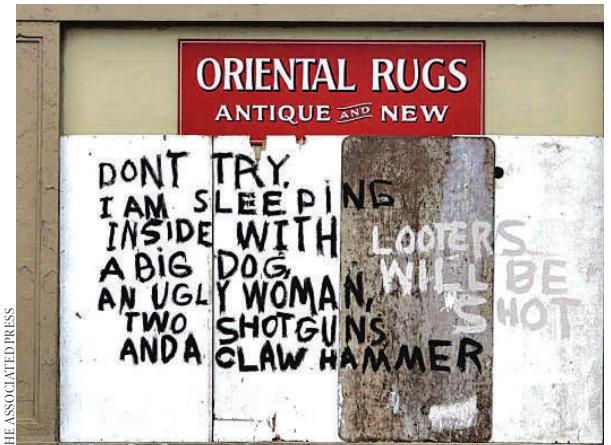 ORIENTAL RUGS
ANTIQUE AND NEW
DONT TRY.
I AM SLEEPING
INSIDE WITH
A BIG DOG,
AN UGLY WOMAN,
TWO SHOTGUNS
AND A CLAW HAMMER
LOOTERS
WILL BE
SHOT
HE ASSOCIATED PRESS